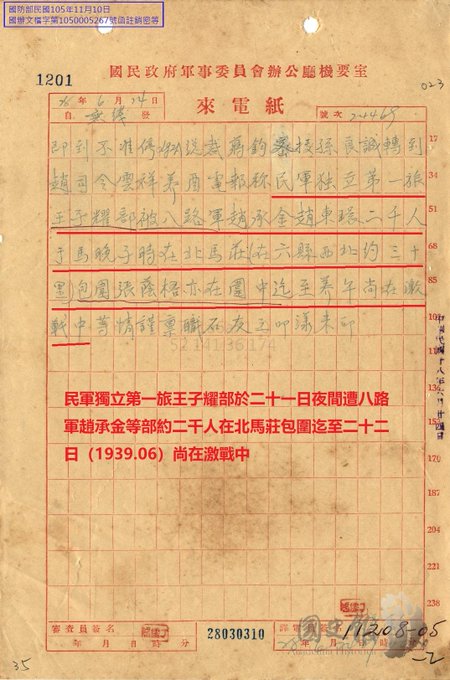 國防部民國105年11月10日
國辦文檔字第1050005267號函註銷密等
國民政府軍事委員會辦公廳機要室
1201
023
28年6月24日
來電紙
自 發
號次 24469
即到不准停 蔣鈞 孫良誠轉到
17
趙司令雲祥養酉電報稱民軍独立第一旅
34
王子耀部被八路軍趙承金趙東環二千人
51
于馬晚子時在北馬莊(在六縣西北約三十
68
里)包圍張蔭梧亦在圍中迄至養午尚在激
85
戰中等情謹稟職石友三叩漾未印
民軍獨立第一旅王子耀部於二十一日夜間遭八路
軍趙承金等部約二千人在北馬莊包圍迄至二十二
日（1939.06）尚在激戰中
170
187
204
221
238
審查員簽名
年 月 日 時
28030310
譯電員簽名
11208-05
-2
35